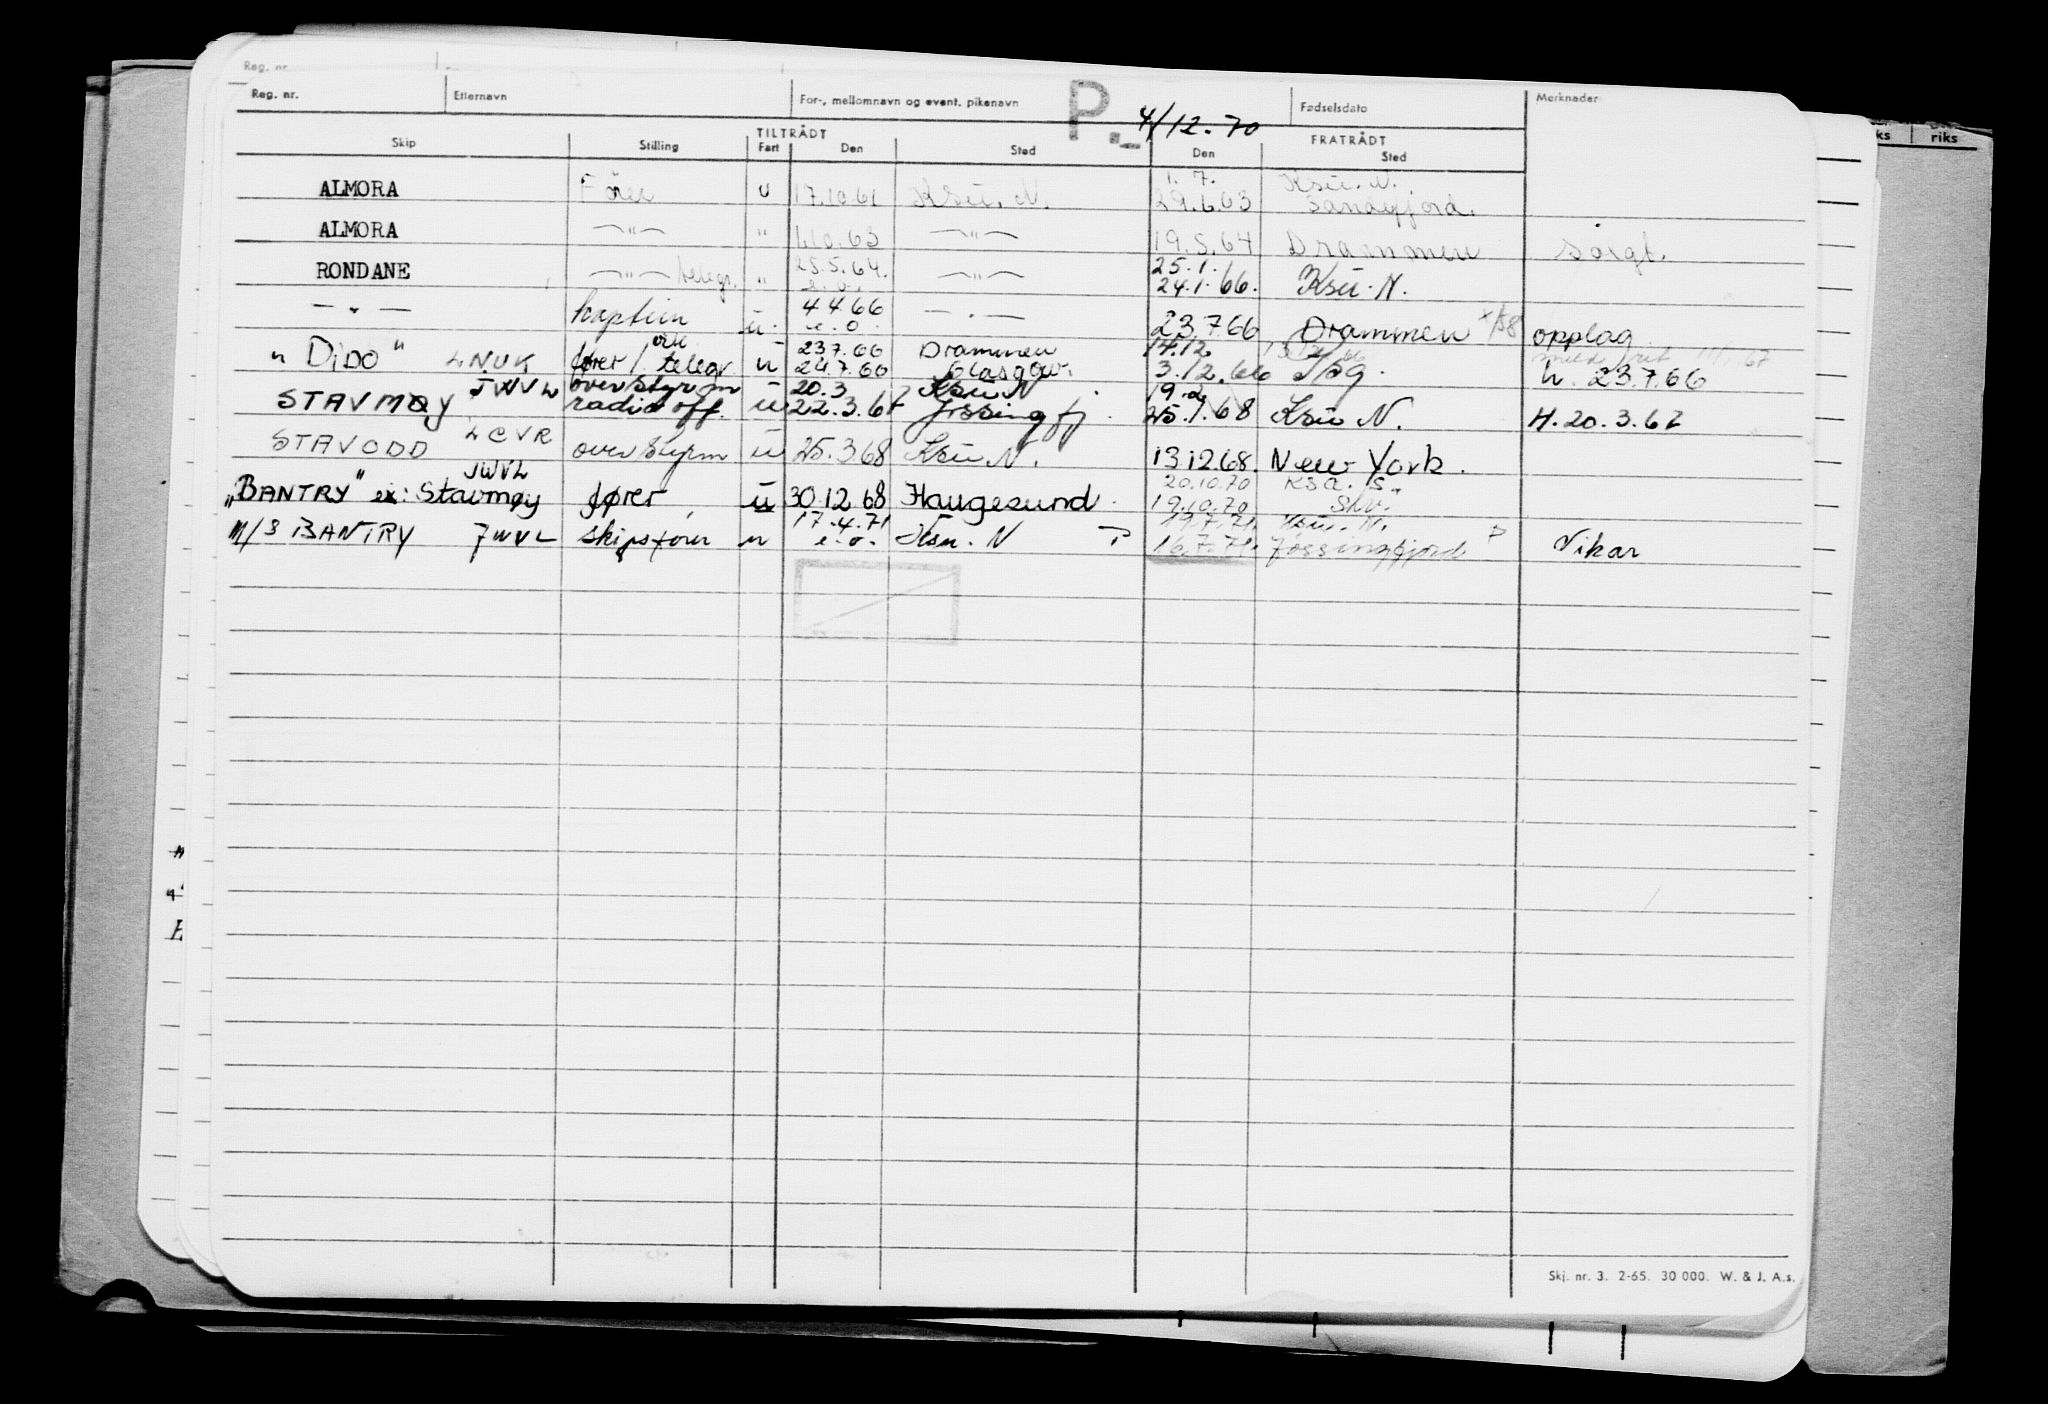 Reg. nr.
Reg. nr. Etternavn For-, mellomnavn og event. pikenavn P. 4/12.70 Fødselsdato Merknader
TILTRÅDT FRATRÅDT
Skip Stilling Fart Den Sted Den Sted
riks
1. 7. Ksu. N.
ALMORA Fører u 17.10.61 Ksu. N. 29.6.63 Sandefjord.
ALMORA —"— " 1.10.63 —"— 19.5.64 Drammen Solgt.
25.5.64. 25.1.
RONDANE —"— telegr. " —"— 24.1.66. Ksu. N.
4.4.66
— " — kaptein u. e.o. — " — 23.7.66 Drammen opplag
23.7.66 Drammen 14.12
"DIDO" LNUK fører / telegr u 24.7.66 Glasgow. 3.12.66 h. 23.7.66
JWVL overstyrm 20.3 Ksu N 19.2
STAVMØY radio off. u 22.3.67 Jøssingfj. 25.1.68 Ksu N. H. 20.3.67
STAVODD LCVR overstyrm u 25.3.68 Ksu N. 13.12.68. New York.
JWVL 20.10.70 Ksa. S.
"BANTRY" ex: Stavmøy fører u 30.12.68 Haugesund. 19.10.70
17.4.71 19.7.71. Ksu. N.
M/S BANTRY JWVL skipsfører u e.o. Ksu. N P 16.7.71. Jøssingfjord P Vikar
Skj. nr. 3. 2-65. 30 000. W. & J. A.s.